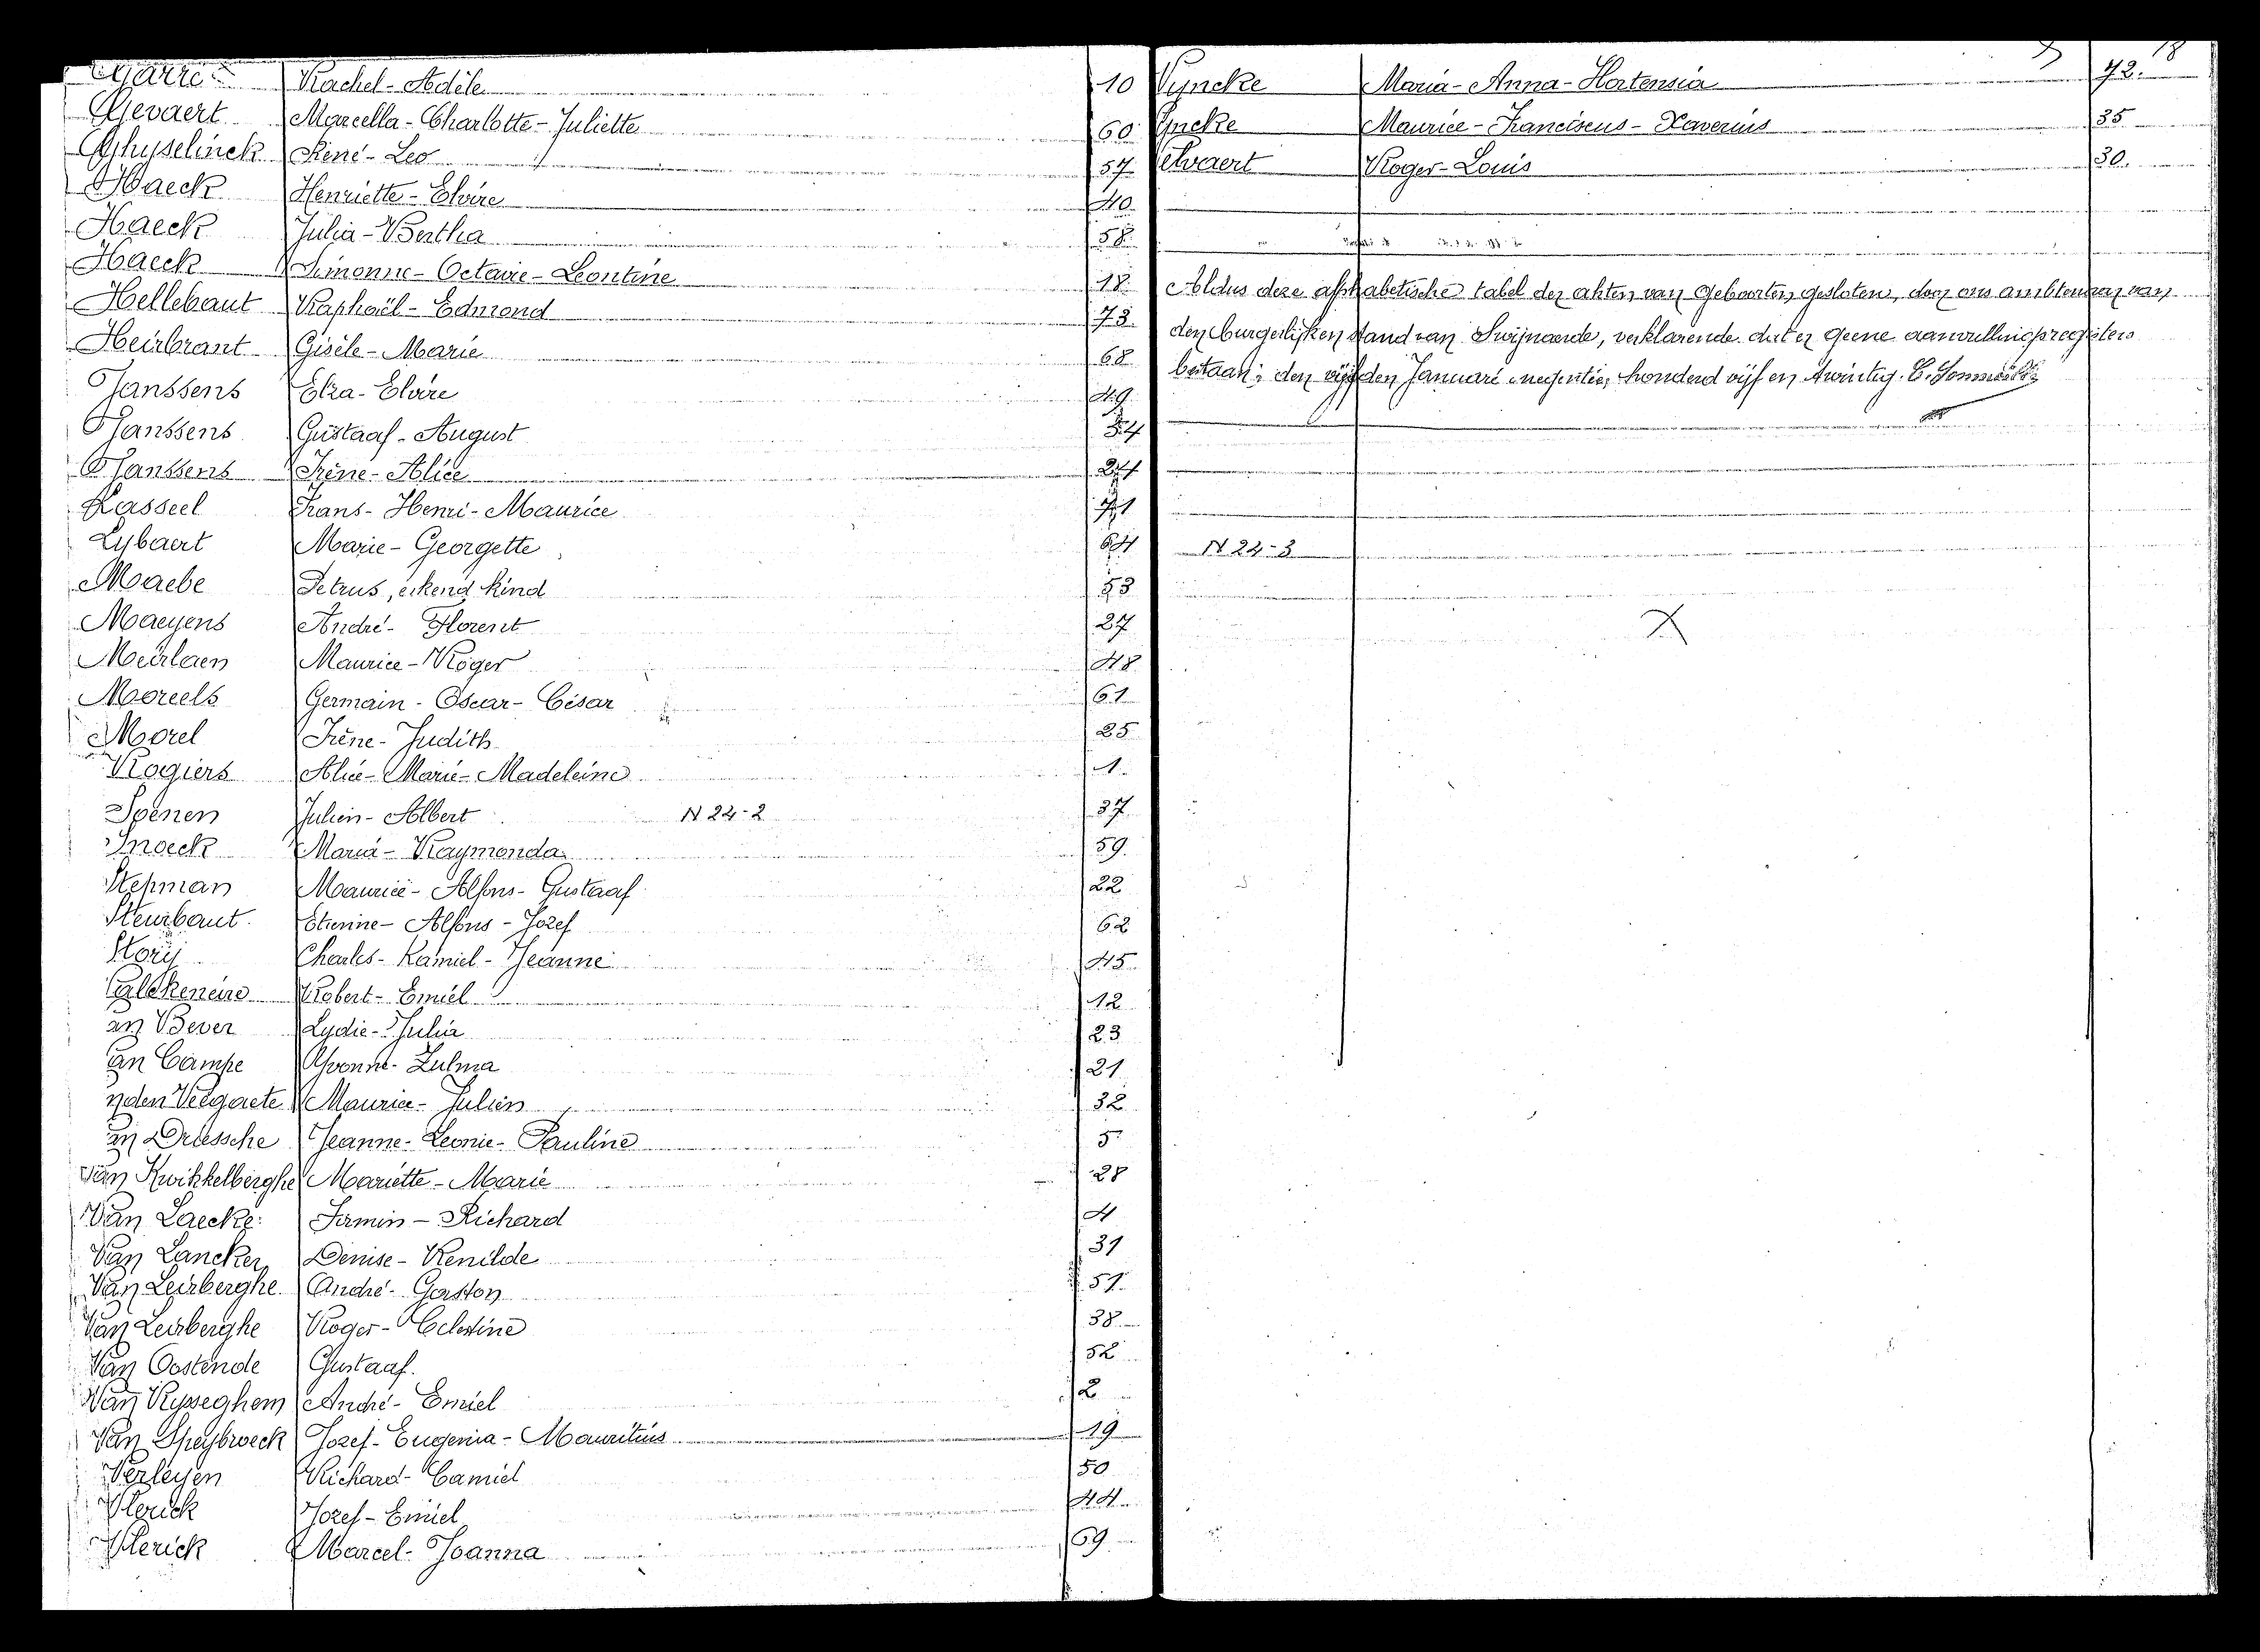 Rachel - Adèle 10
Gevaert Marcella - Charlotte - Juliette 60
Ghyselinck René - Leo 57
Haeck Henriette - Elvire 40
Haeck Julia - Bertha 58
Haeck Simonne - Octavie - Leontine 18
Hellebaut Raphaël - Edmond 73
Heirbrant Gisèle - Marie 68
Janssens Elza - Elvire 49
Janssens Gustaaf - August
Janssens Irène - Alice 24
Kasseel Frans - Henri - Maurice 71
Lybaert Marie - Georgette 64
Maebe Petrus, erkend kind 53
Maeyens André - Florent 27
Meirlaen Maurice - Roger 48
Moreels Germain - Oscar - César 61
Morel Irène - Judith 25
Rogiers Alice - Marie - Madeleine 1
Spenen Julien - Albert N 24 - 2 37
Snoeck Maria - Raymonda 59
Stepman Maurice - Alfons - Gustaaf 22
Steurbaut Etienne - Alfons - Jozef 62
Story Charles - Kamiel - Jeanne 45
alckeneire Robert - Emiel 12
an Bever Lydie - Julia 23
an Campe Yvonne - Zulma 21
nden Veegaete Maurice - Julien 32
an Driessche Jeanne - Leonie - Pauline 5
Van Kwikkelberghe Mariette - Marie 28
Van Laecke Firmin - Richard 4
Van Lancker Denise - Renilde 31
Van Leirberghe André - Gaston 51
Van Leirberghe Roger - Celestine 38
Van Oostende Gustaaf. 52
Van Rysseghem André - Emiel 2
Van Speybroeck Jozef - Eugenia - Mauritius 19
Verleyen Richard - Camiel 50
Vlerick Jozef - Emiel 44
Vlerick Marcel - Joanna 69
18
Vyncke Maria - Anna - Hortensia 72.
yncke Maurice - Franciscus - Xaverius 35
Roger - Louis 30.
Aldus deze alphabetische tabel der akten van Geboorten gesloten, door ons ambtenaar van
den burgerlijken stand van Swijnaerde, verklarende dat er geene aanvullingsregisters
bestaan; den vijfden Januari negentien honderd vijf en twintig.
N 24 - 3